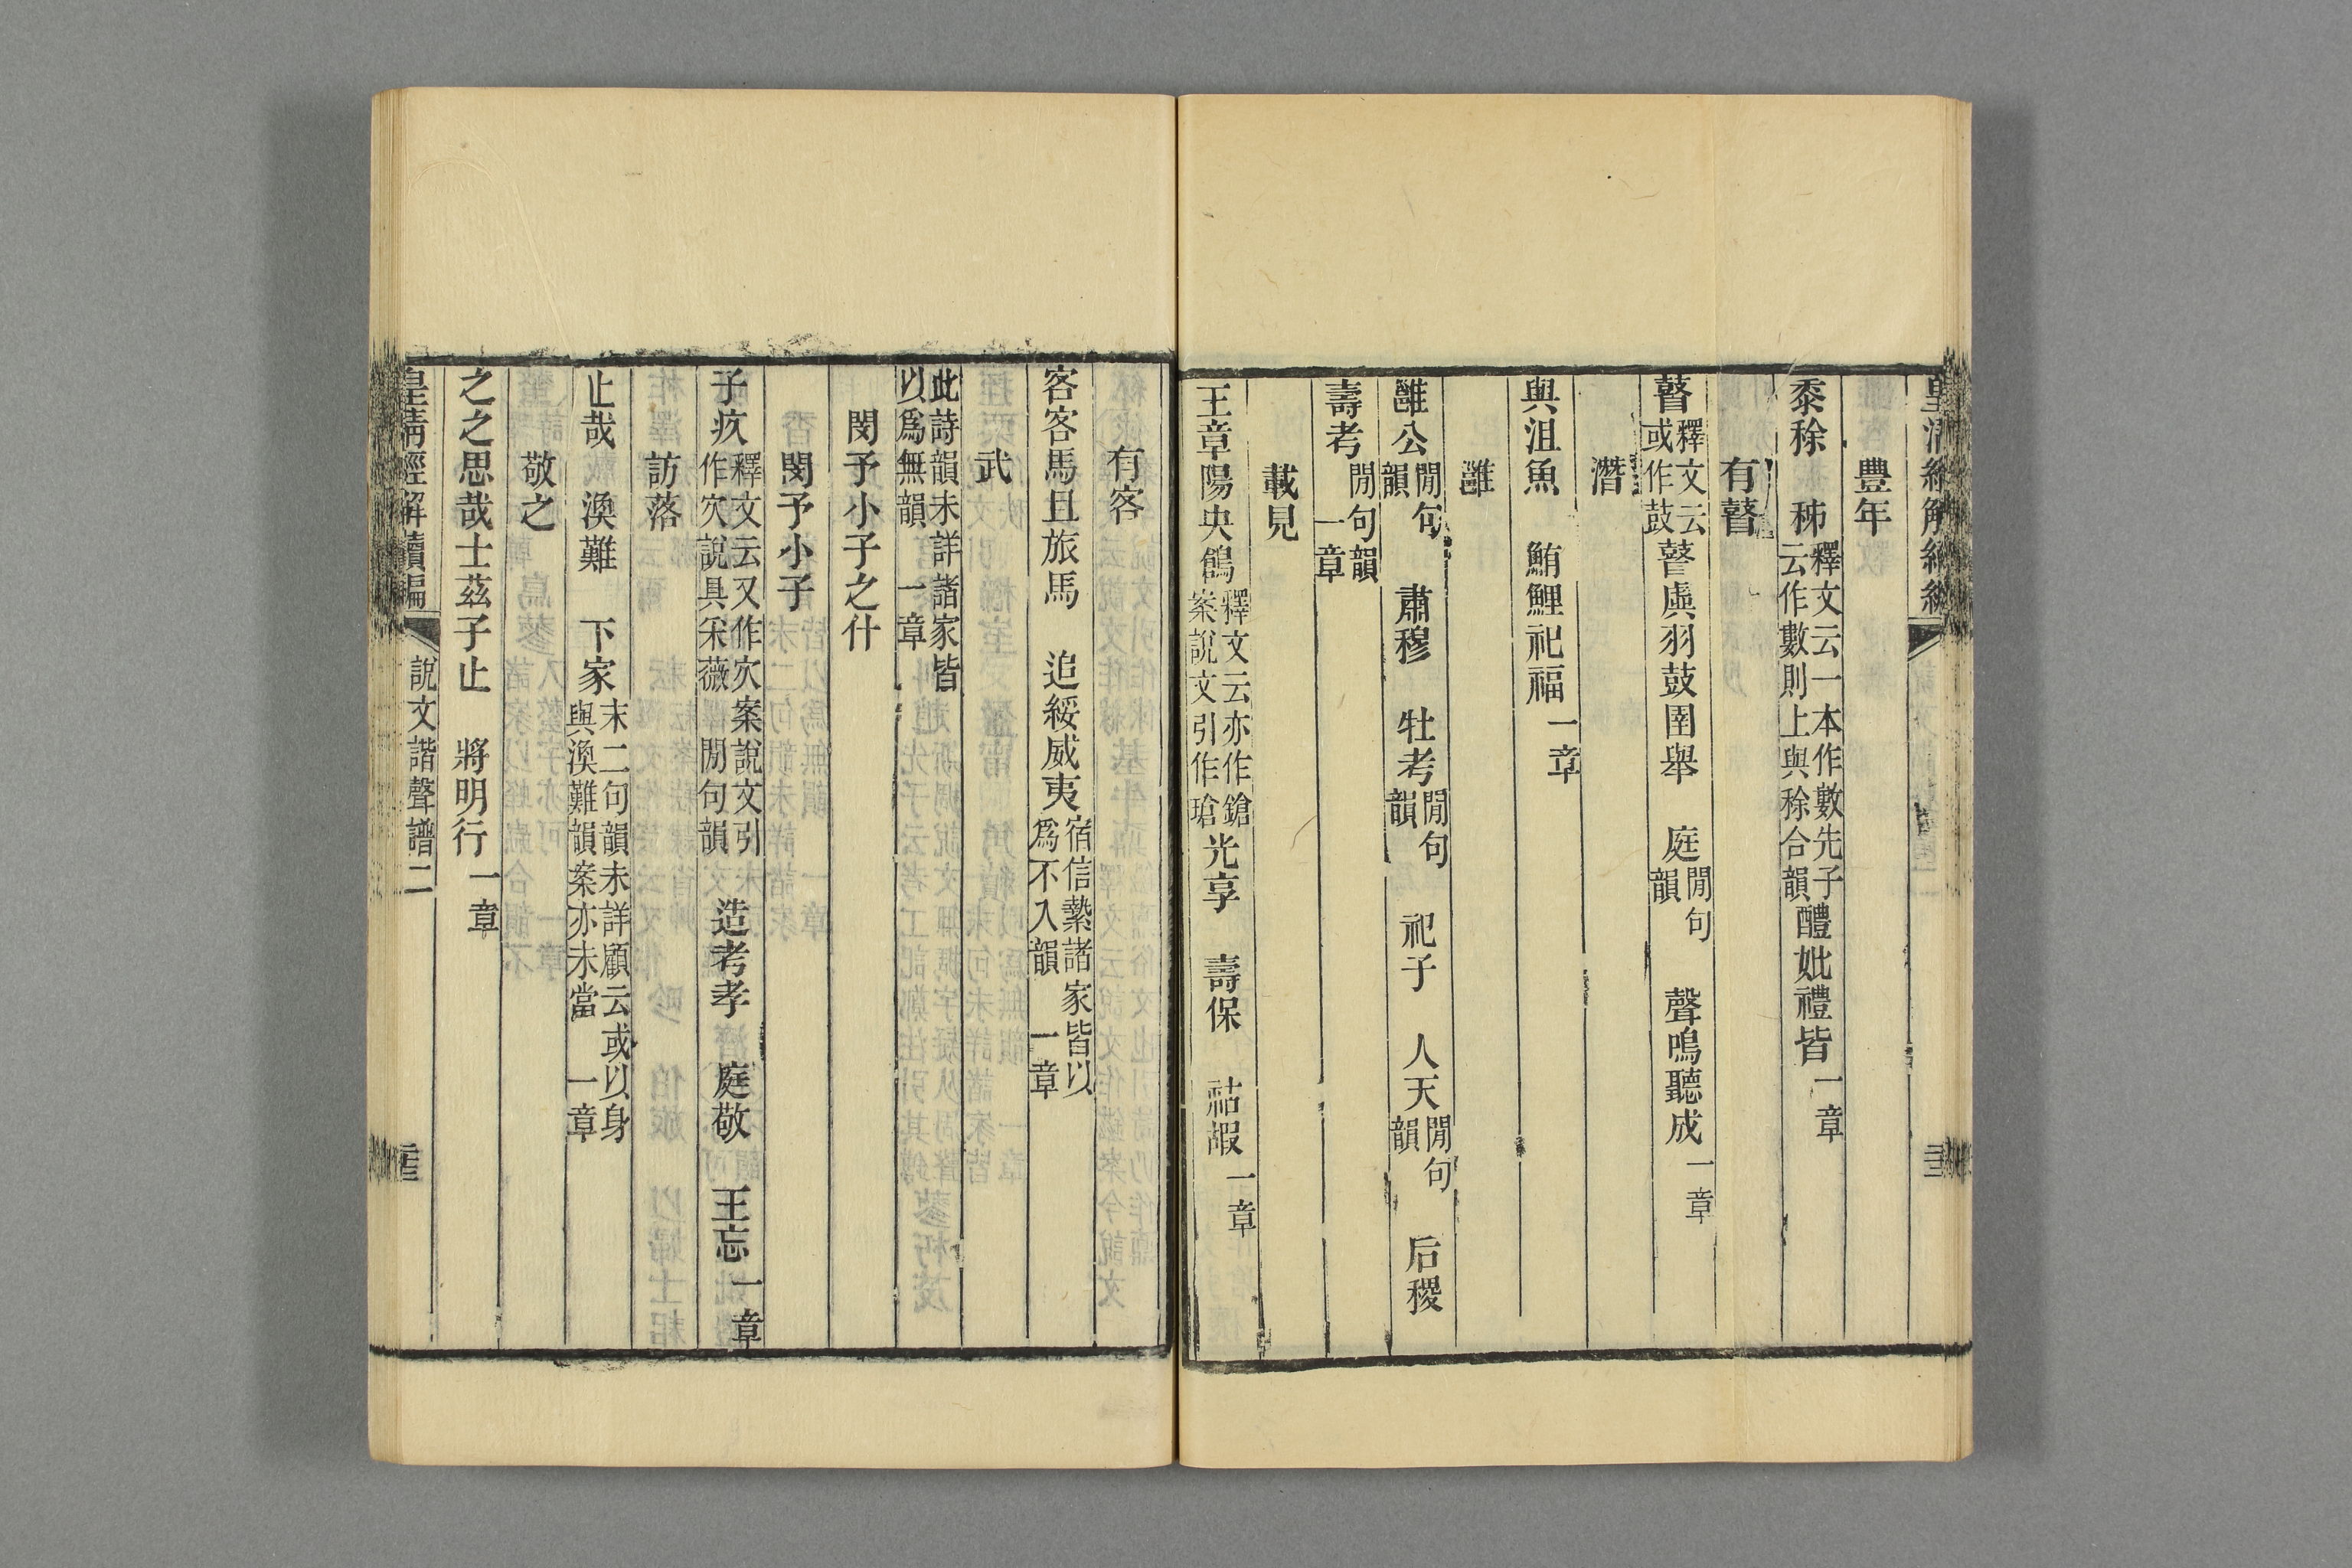 豐年
黍稌　秭釋文云一本作數先子云作數則上與稌合韻醴妣禮皆一章
有瞽
瞽釋文云或作鼓瞽虡羽鼓圉舉　庭閒句韻　聲鳴聽成一章
潛
與沮魚　鮪鯉祀福一章
雝
雝公閒句韻　肅穆　牡考閒句韻　祀子　人天閒句韻　后稷
壽考閒句韻一章
載見
王章陽央鶬釋文云亦作鎗案說文引作瑲光享　壽保　祜嘏一章
有客
客客馬且旅馬　追綏威夷宿信縶諸家皆以爲不入韻　一章
武
此詩韻未詳諸家皆以爲無韻　一章
閔予小子之什
閔予小子
子疚釋文云又作㝌案說文引作㝌說具采薇　閒句韻　造考孝　庭敬　王忘一章
訪落
止哉　渙難　下家末二句韻未詳顧云或以身與渙難韻案亦未當　一章
敬之
之之思哉士茲子止　將明行一章
皇淸經解續編　說文諧聲譜二